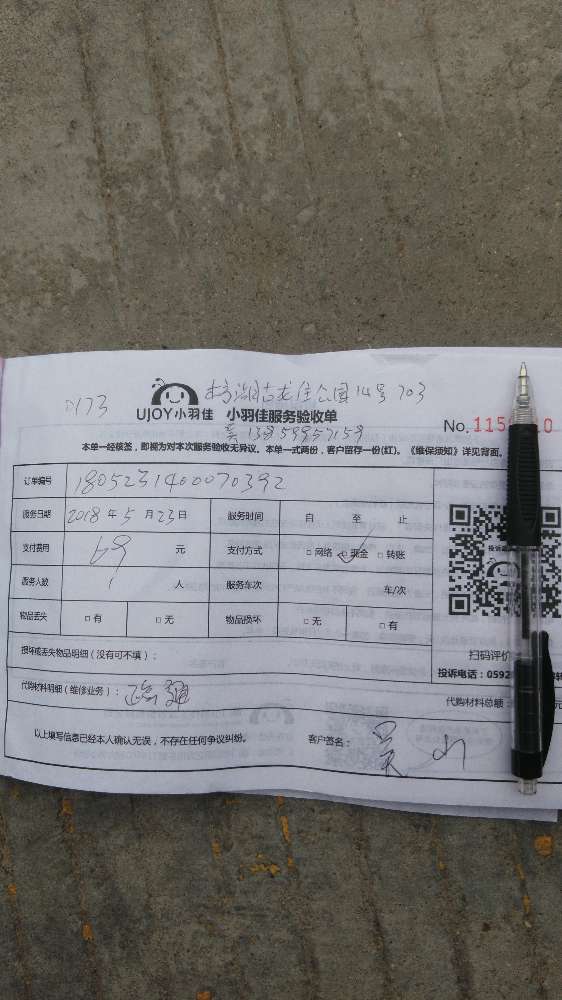 0173
杏湖古龙佳公园14号703
UJOY小羽佳 小羽佳服务验收单
吴 13959957159
No. 115 10
本单一经核签，即视为对本次服务验收无异议。本单一式两份，客户留存一份(红)。《维保须知》详见背面。
订单编号 1805231400070392
服务日期 2018年5月23日 服务时间 自 至 止
支付费用 69 元 支付方式 □网络 □现金 □转账
服务人数 1 人 服务车次 车/次
物品丢失 □有 □无 物品损坏 □无 □有
损坏或丢失物品明细（没有可不填）：
扫码评价
投诉电话：0592
代购材料明细（维修业务）：
代购材料总额： 元
以上填写信息已经本人确认无误，不存在任何争议纠纷。 客户签名： 吴